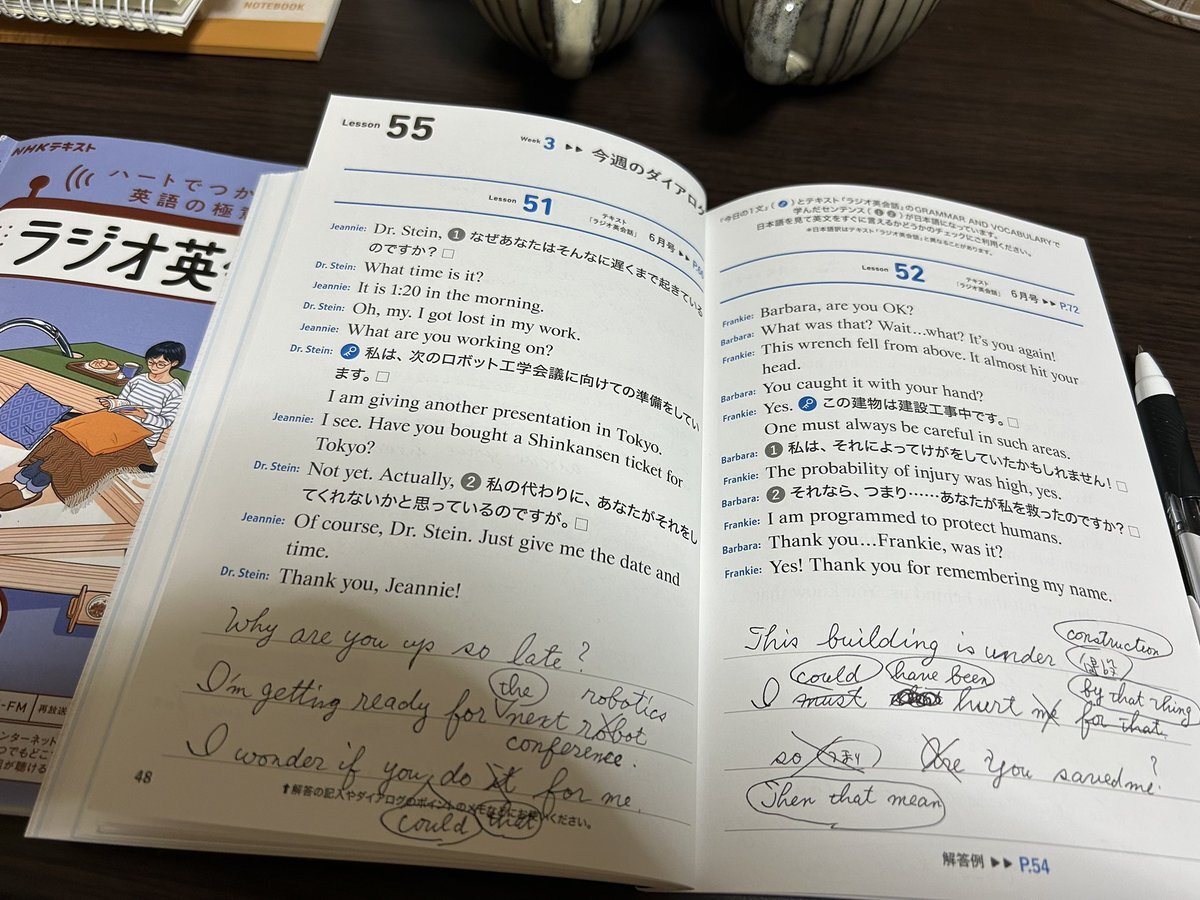 NOTEBOOK
NHKテキスト
ハートでつか
英語の極
ラジオ英
-FM
再放送
ンターネット
つでもどこ
が聴ける
Lesson 55
Week 3 ▶▶ 今週のダイアログ
Lesson 51
テキスト
「ラジオ英会話」 6月号 ▶▶
Jeannie: Dr. Stein, ❶ なぜあなたはそんなに遅くまで起きている
のですか？□
Dr. Stein: What time is it?
Jeannie: It is 1:20 in the morning.
Dr. Stein: Oh, my. I got lost in my work.
Jeannie: What are you working on?
Dr. Stein: 私は、次のロボット工学会議に向けての準備をしてい
ます。□
I am giving another presentation in Tokyo.
Jeannie: I see. Have you bought a Shinkansen ticket for
Tokyo?
Dr. Stein: Not yet. Actually, ❷ 私の代わりに、あなたがそれをし
てくれないかと思っているのですが。□
Jeannie: Of course, Dr. Stein. Just give me the date and
time.
Dr. Stein: Thank you, Jeannie!
Why are you up so late?
the robotics
I'm getting ready for next robot
conference.
I wonder if you do it for me.
could that
48
⬆解答の記入やダイアログのポイントのメモなどにお使いください。
「今日の1文」( )とテキスト「ラジオ英会話」のGRAMMAR AND VOCABULARYで
学んだセンテンス(❶❷)が日本語になっています。
日本語を見て英文をすぐに言えるかどうかのチェックにご利用ください。
＊日本語訳はテキスト「ラジオ英会話」と異なることがあります。
Lesson 52
テキスト
「ラジオ英会話」 6月号 ▶▶ P.72
Frankie: Barbara, are you OK?
Barbara: What was that? Wait…what? It's you again!
Frankie: This wrench fell from above. It almost hit your
head.
Barbara: You caught it with your hand?
Frankie: Yes. この建物は建設工事中です。□
One must always be careful in such areas.
Barbara: ❶ 私は、それによってけがをしていたかもしれません！□
Frankie: The probability of injury was high, yes.
Barbara: ❷ それなら、つまり……あなたが私を救ったのですか？□
Frankie: I am programmed to protect humans.
Barbara: Thank you…Frankie, was it?
Frankie: Yes! Thank you for remembering my name.
construction
This building is under
could have been by that thing
I must hurt me for that
so つまり Are you saved me?
Then that mean
解答例 ▶▶ P.54